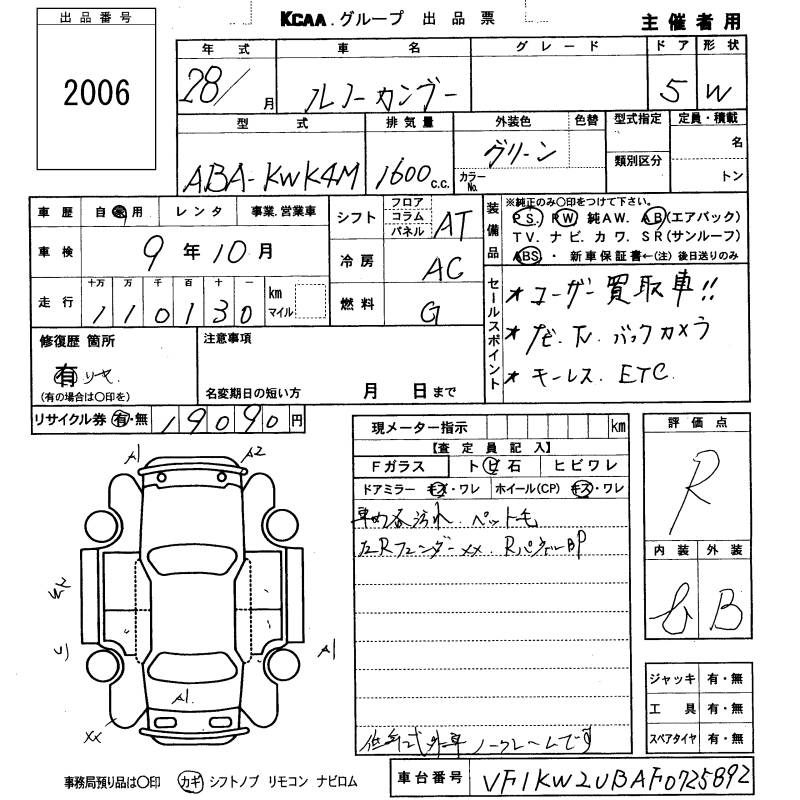 出品番号
2006
KCAA.グループ 出品票
主催者用
年式 車名 グレード ドア 形状
28/ 月 ルノーカングー 5 W
型式 排気量 外装色 色替 型式指定 定員・積載
ABA-KWK4M 1600 c.c. グリーン カラーNo. 類別区分 名
トン
車歴 自家用 レンタ 事業.営業車
車検 9年10月
走行 十万 万 千 百 十 一
110130 km マイル
シフト フロア コラム パネル AT
冷房 AC
燃料 G
装備品
※純正のみ〇印をつけて下さい。
PS. PW 純AW. AB(エアバック)
TV. ナビ. カワ. SR(サンルーフ)
ABS・ 新車保証書←(注) 後日送りのみ
セールスポイント
*ユーザー買取車!!
*ナビ.TV.バックカメラ
*キーレス. ETC.
修復歴 箇所
有 リヤ
(有の場合は〇印を)
注意事項
名変期日の短い方 月 日まで
リサイクル券 有・無 19090円
現メーター指示 km
【査定員記入】
Fガラス トビ石 ヒビワレ
ドアミラー キズ・ワレ ホイール(CP) キズ・ワレ
車内汚れ.ペット毛
左Rフェンダーxx. RパネルBP
低年式外車ノークレームです
評価点
R
内装 外装
B
ジャッキ 有・無
工具 有・無
スペアタイヤ 有・無
A1 A2
A1
A1
xx
事務局預り品は〇印 カギ シフトノブ リモコン ナビロム
車台番号 VF1KW2UBAF0725892